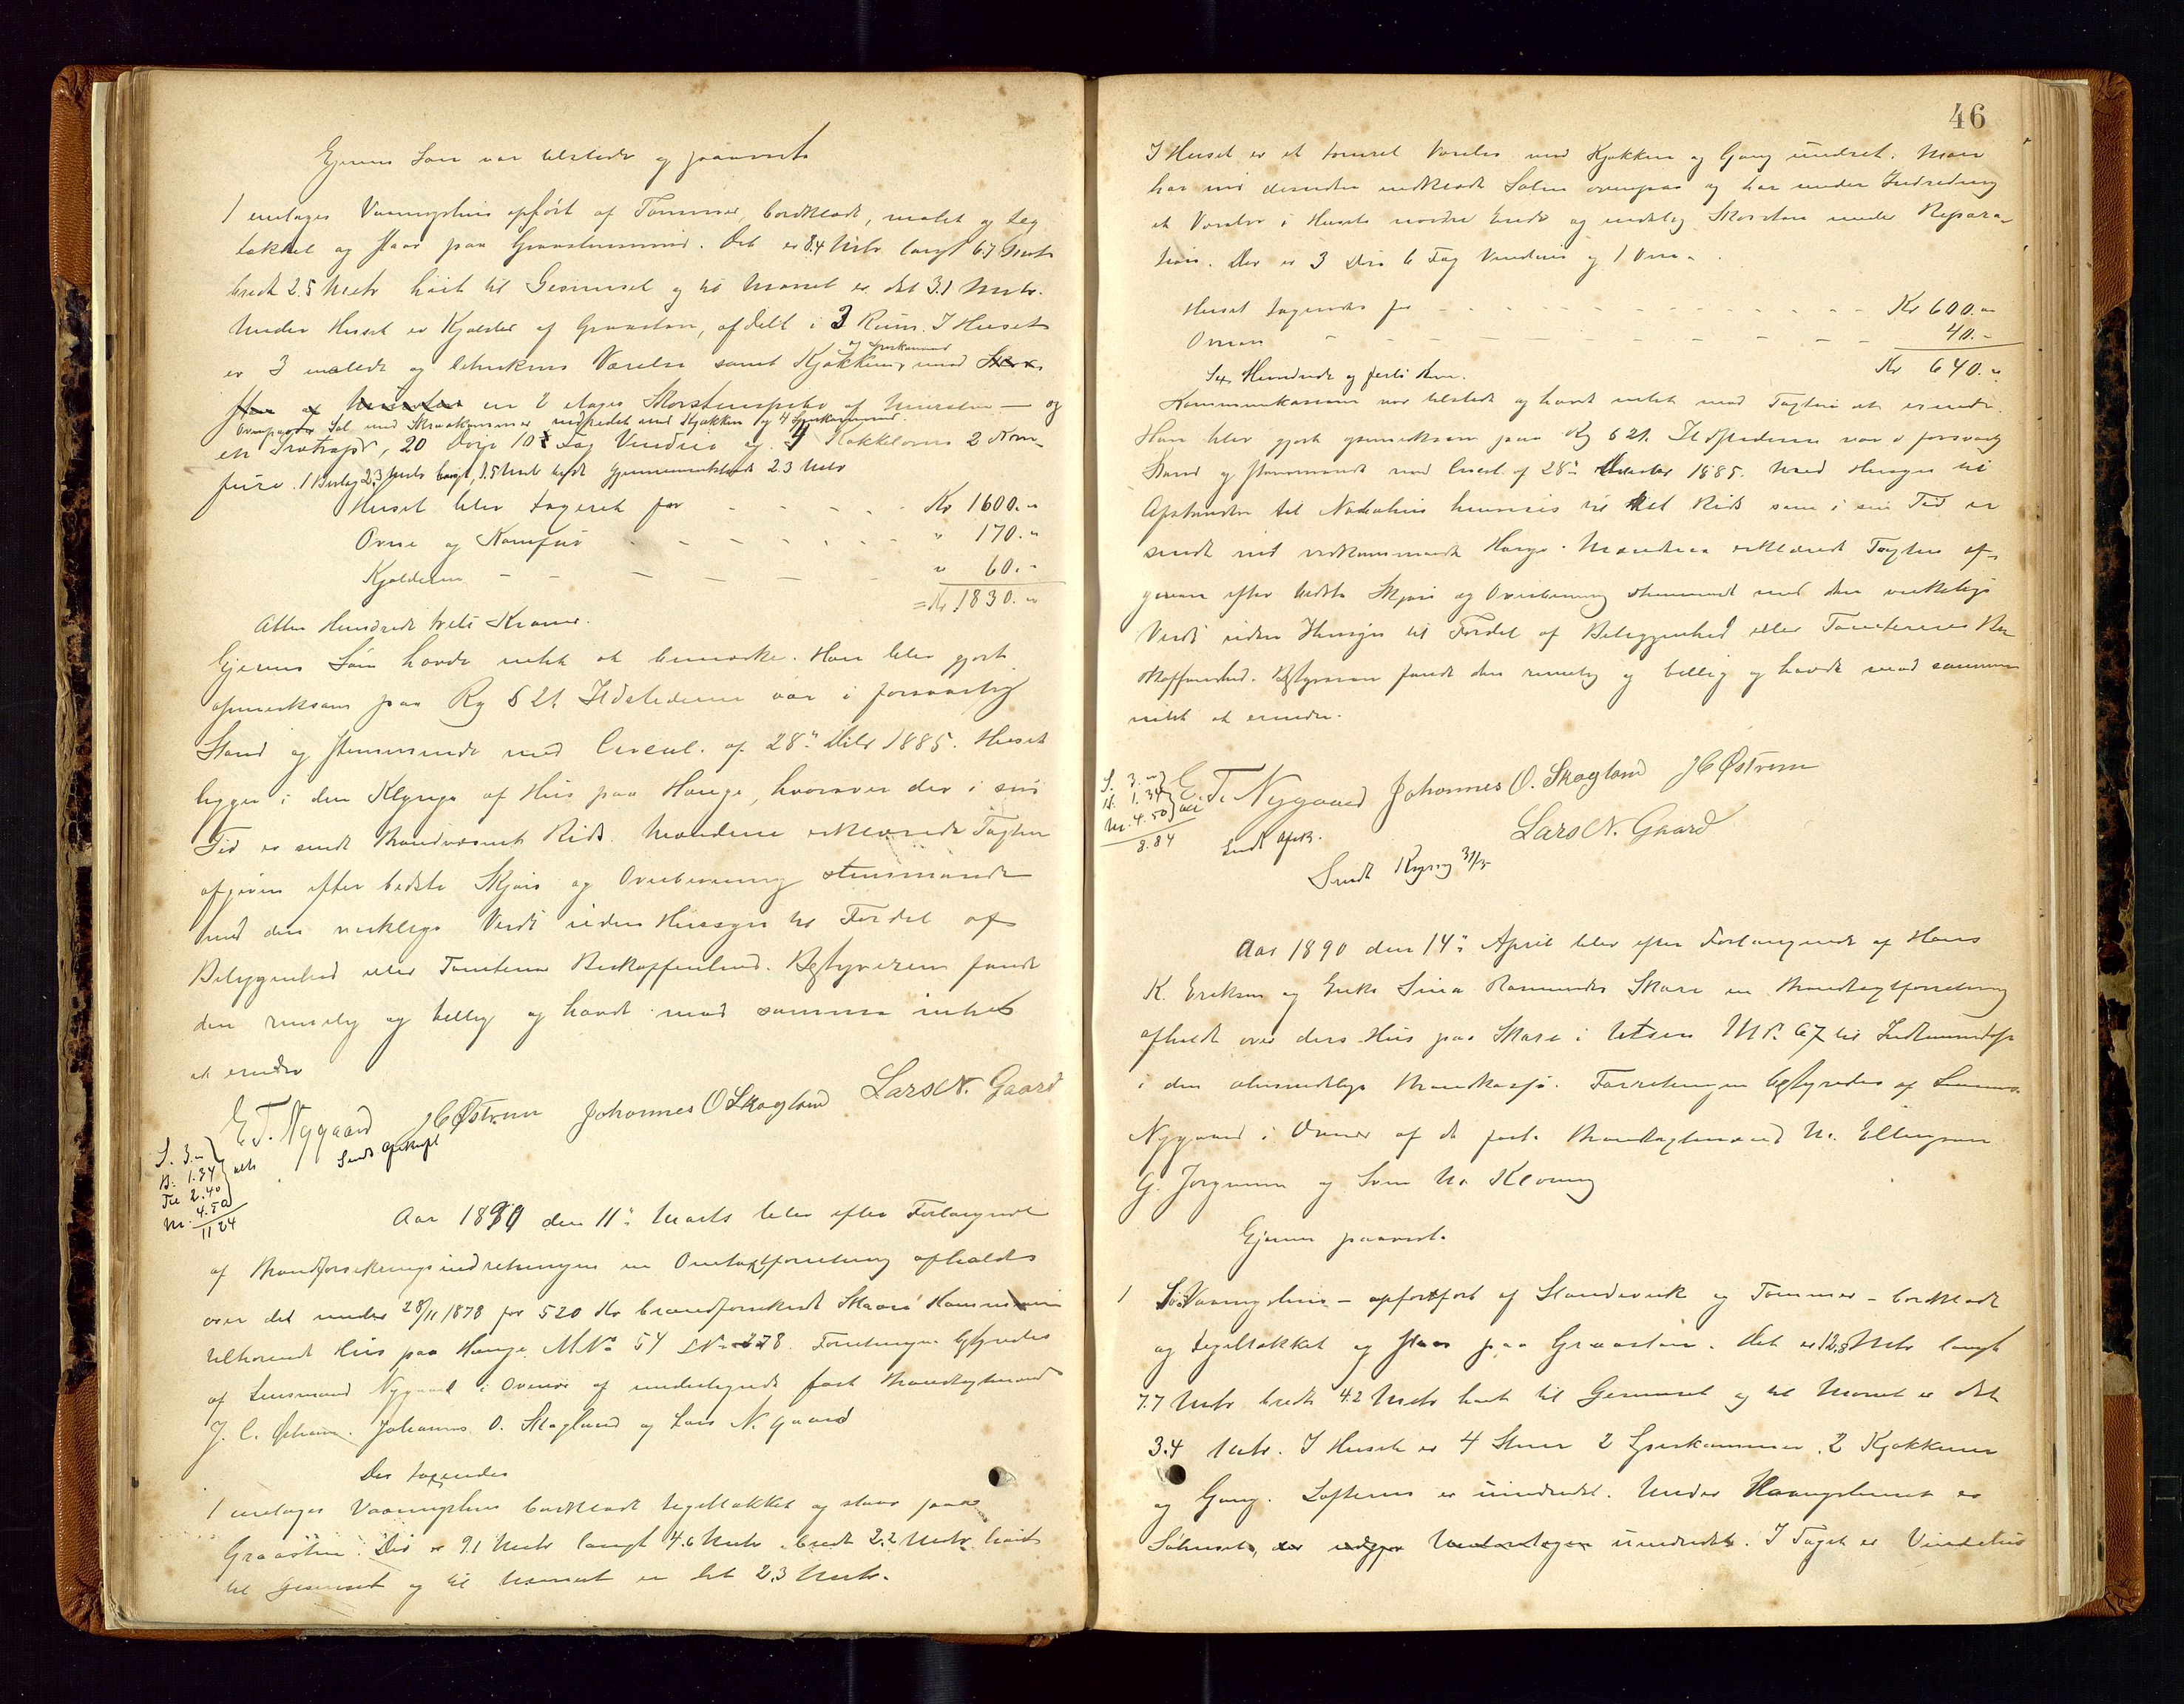 Ejerens Søn var tilstede og paaviste
1 etages Vaaningshus opført af Tømmer, bordklædt, malet og teg
lakket og staar paa Graastensmur. Det er 8.4 Metr langt 6.7 Metr
bredt 2.5 Metr høit til Gesimset og til Mønet er det 3.1 Metr.
Under Huset er Kjælder af Graasten, afdelt i 3 Rum. I Huset
og Spiskammer
er 3 malede og betrukne Værelser samt Kjøkken, med
en 2 etages Skorstenspibe af Mursten og
Ovenpaa er Sal med Skraakammer indredet med Kjøkken og 4 Spiskammer
en Trætrappe, 20 Døre 10 Fag Vinduer og 4 Kakkelovne 2 Kom
furer. 1 Bislag 2.3 Metr langt, 1.5 Metr bredt Gjennemsnitshøide 2.3 Metr
Huset blev taxeret for - - - - - Kr 1600.-
Ovne og Komfur - - - - - - " 170.-
Kjælderen - - - - - " 60.-
= Kr 1830.-
Atten Hundrede treti Kroner.
Ejerens Søn havde intet at bemærke. Han blev gjort
opmærksom paa Rg § 21. Ildstederne var i forsvarlig
Stand og stemmende med Circul. af 28de Mai 1885. Huset
ligger i den Klynge af Hus paa Hauge, hvorover der i sin
Tid er sendt Brandvæsenet Rids. Mændene erklærede Taxten
afgiven efter bedste Skjøn og Overbevisning stemmende
med den virkelige Værdi uden Hensyn til Fordel af
Beliggenhed eller Tomtens Beskaffenhed. Bestyreren fandt
den rimelig og billig og havde mod samme intet
at erindre
E. T. Nygaard JC Østrem Johannes O Skogland Lars N. Gaard
S. 3.-
B. 1.34
Til 2.40
M. 4.50
11 24
Sendt Afskrift
Aar 1890 den 11te Marts blev efter Forlangende
af Brandforsikringsindretningen en Omtaxtforretning afholdt
over det under 28/11 1878 for 520 Kr brandforsikrede Skaare Kommune
tilhørende Hus paa Hauge M.No 54 LNo 278. Forretningen bestyredes
af Lensmand Nygaard i Overvær af undertegnede faste Brandtaxtmænd
J. C. Østrem. Johannes O. Skogland og Lars N. Gaard
Der taxeredes
1 etages Vaaningshus bordklædt tegltakket og staar paa
Graasten. Det er 9.1 Metr langt 4.6 Metr bredt 2.2 Metr høit
til Gesimset og til Mønet er det 2.3 Metr.
46
I Huset er et tømret Værelse med Kjøkken og Gang indredt. Man
har nu desuden indklædt Salen ovenpaa og har under Indredning
et Værelse i Husets nordre Ende og endelig Skorsten under Repara
tion. Der er 3 Døre 6 Fag Vinduer og 1 Ovn.
Huset taxeredes for - - - - - - - - - Kr 600.-
Ovnen - - - - - - - - - 40.-
Sex Hundrede og forti Kron. Kr 640.-
Kommunekasserer var tilstede og havde intet mod Taxten at erindre.
Han blev gjort opmerksom paa Rg § 21. Ildstederne var i forsvarlig
Stand og stemmende med Circul af 28de 1885. Med Hensyn til
Afstanden til Nabohus henvises til det Rids som i sin Tid er
sendt vedkommende Hauge. Mændene erklærede Taxten af
given efter bedste Skjøn og Overbevisning stemmende med den virkelige
Værdi uden Hensyn til Fordel af Beliggenhed eller Tomtens Be
skaffenhed. Bestyreren fandt den rimelig og billig og havde mod samme
intet at erindre.
S. 3.-
B. 1.34
M. 4.50
8.84
E. T. Nygaard Johannes O. Skogland JC Østrem
Lars N. Gaard
Sendt Afskr.
Sendt Regning 31/3
Aar 1890 den 14de April blev efter Forlangende af Hans
K. Eriksen og Enke Sina Rasmusdr Skare en Brandtaxtforretning
afholdt over ders Hus paa Skare i Utsira MNo 67 til Indlemmelse
i den almindelige Brandkasse. Forretningen bestyredes af Lensmd.
Nygaard i Overvær af de faste Brandtaxtmænd M. Ellingsen
G. Jørgensen og Sven M. Klovning
Ejerne paaviste
1 Vaaningshus - opført af Standerverk og Tømmer - bordklædt
og tegeltakket og staar paa Graasten. Det er 12.8 Metr langt
7.7 Metr bredt 4.2 Metr høit til Gesimset og til Mønet er det
3.4 Metr. I Huset er 4 Stuer 2 Spiskammer, 2 Kjøkkener
og Gang. Lofterne er uindredet. Under Vaaningshuset er
Søhuset, uindredet. I Taget er Vindehus